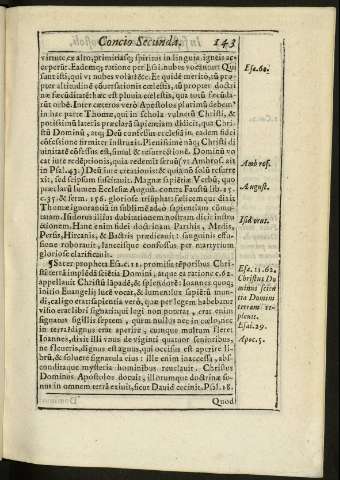 Concio Secunda. 143
virtute ex alto, primitiasq; spiritus in linguis igneis ac
ceperūt. Eademq; ratione per Esai. nubes vocantur Qui
sunt isti, qui vt nubes volāt &c. Et quidē meritò, tū pro
pter altitudinē cōuersationis cœlestis, tū propter doctri
næ fœcūditatē: hæc est pluuia cœlestis, qua totū fœcūda
rūt orbē. Inter cæteros verò Apostolos plurimū debem⁹
in hac parte Thomæ, qui in schola vulnerū Christi, &
potissimū lateris præclarā sapientiam didicit, qua Chri
stū Dominū, atq; Deū confessus ecclesiā in eadem fidei
cōfessione firmiter instruxit. Plenissimè nāq; Christi di
uinitatē cōfessus est, simul & resurrectionē. Dominū vo
cat iure redēptionis, quia redemit seruū (vt Ambros. ait
in Psal. 43.) Deū iure creationis: & quia nō solū resurre
xit, sed seipsum suscitauit. Magnæ sapiētiæ Verbū, quo
præclarū lumen Ecclesiæ August. contra Faustū lib. 15.
c. 35. & serm. 156. gloriosè triuphat, fœlicemque dicit
Thomæ ignorantiā in sublimē adeò sapientiam cōmu-
tatam. Isidorus illius dubitationem nostram dicit instru
ctionem. Hanc enim fidei doctrinam Parthis, Medis,
Persis, Hircanis, & Bactris prædicauit: sanguinis effu-
sione roborauit, lanceisque confossus per martyrium
gloriosè clarificauit.
¶Sacer propheta Esa. c. 11. promissis tēporibus Chri-
sti terrā impledā scientia Domini, atque ea ratione c. 62.
appellauit Christū lāpadē, & splendorē: Ioannes quoq;
initio Euangelij lucē vocat, & lumen: lux sapiētū mun-
di, caligo extra sapientia verò, quæ per legem habebatur
visio erat libri signati qui legi non poterat, erat enim
signatus sigillis septem, quem nullus nec in cœlo, nec
in terra dignus erat aperire, cumque multum fleret
Ioannes, dixit illi vnus de viginti quatuor senioribus,
ne fleueris, dignus est agnus, qui occisus est aperire li-
brū, & soluere signacula eius: ille enim inaccessa, abs-
conditaque mysteria hominibus reuelauit. Christus
Dominus Apostolos docuit, illorumque doctrinæ so-
nus in omnem terrā exiuit, sicut Dauid cecinit. Psal. 18.
Quod
Esa. 60.
Ambros.
August.
Isidorus.
Esa. 11. 62.
Christus Do
minus scien
tia Domini
terram re-
pleuit.
Esai. 29.
Apoc. 5.